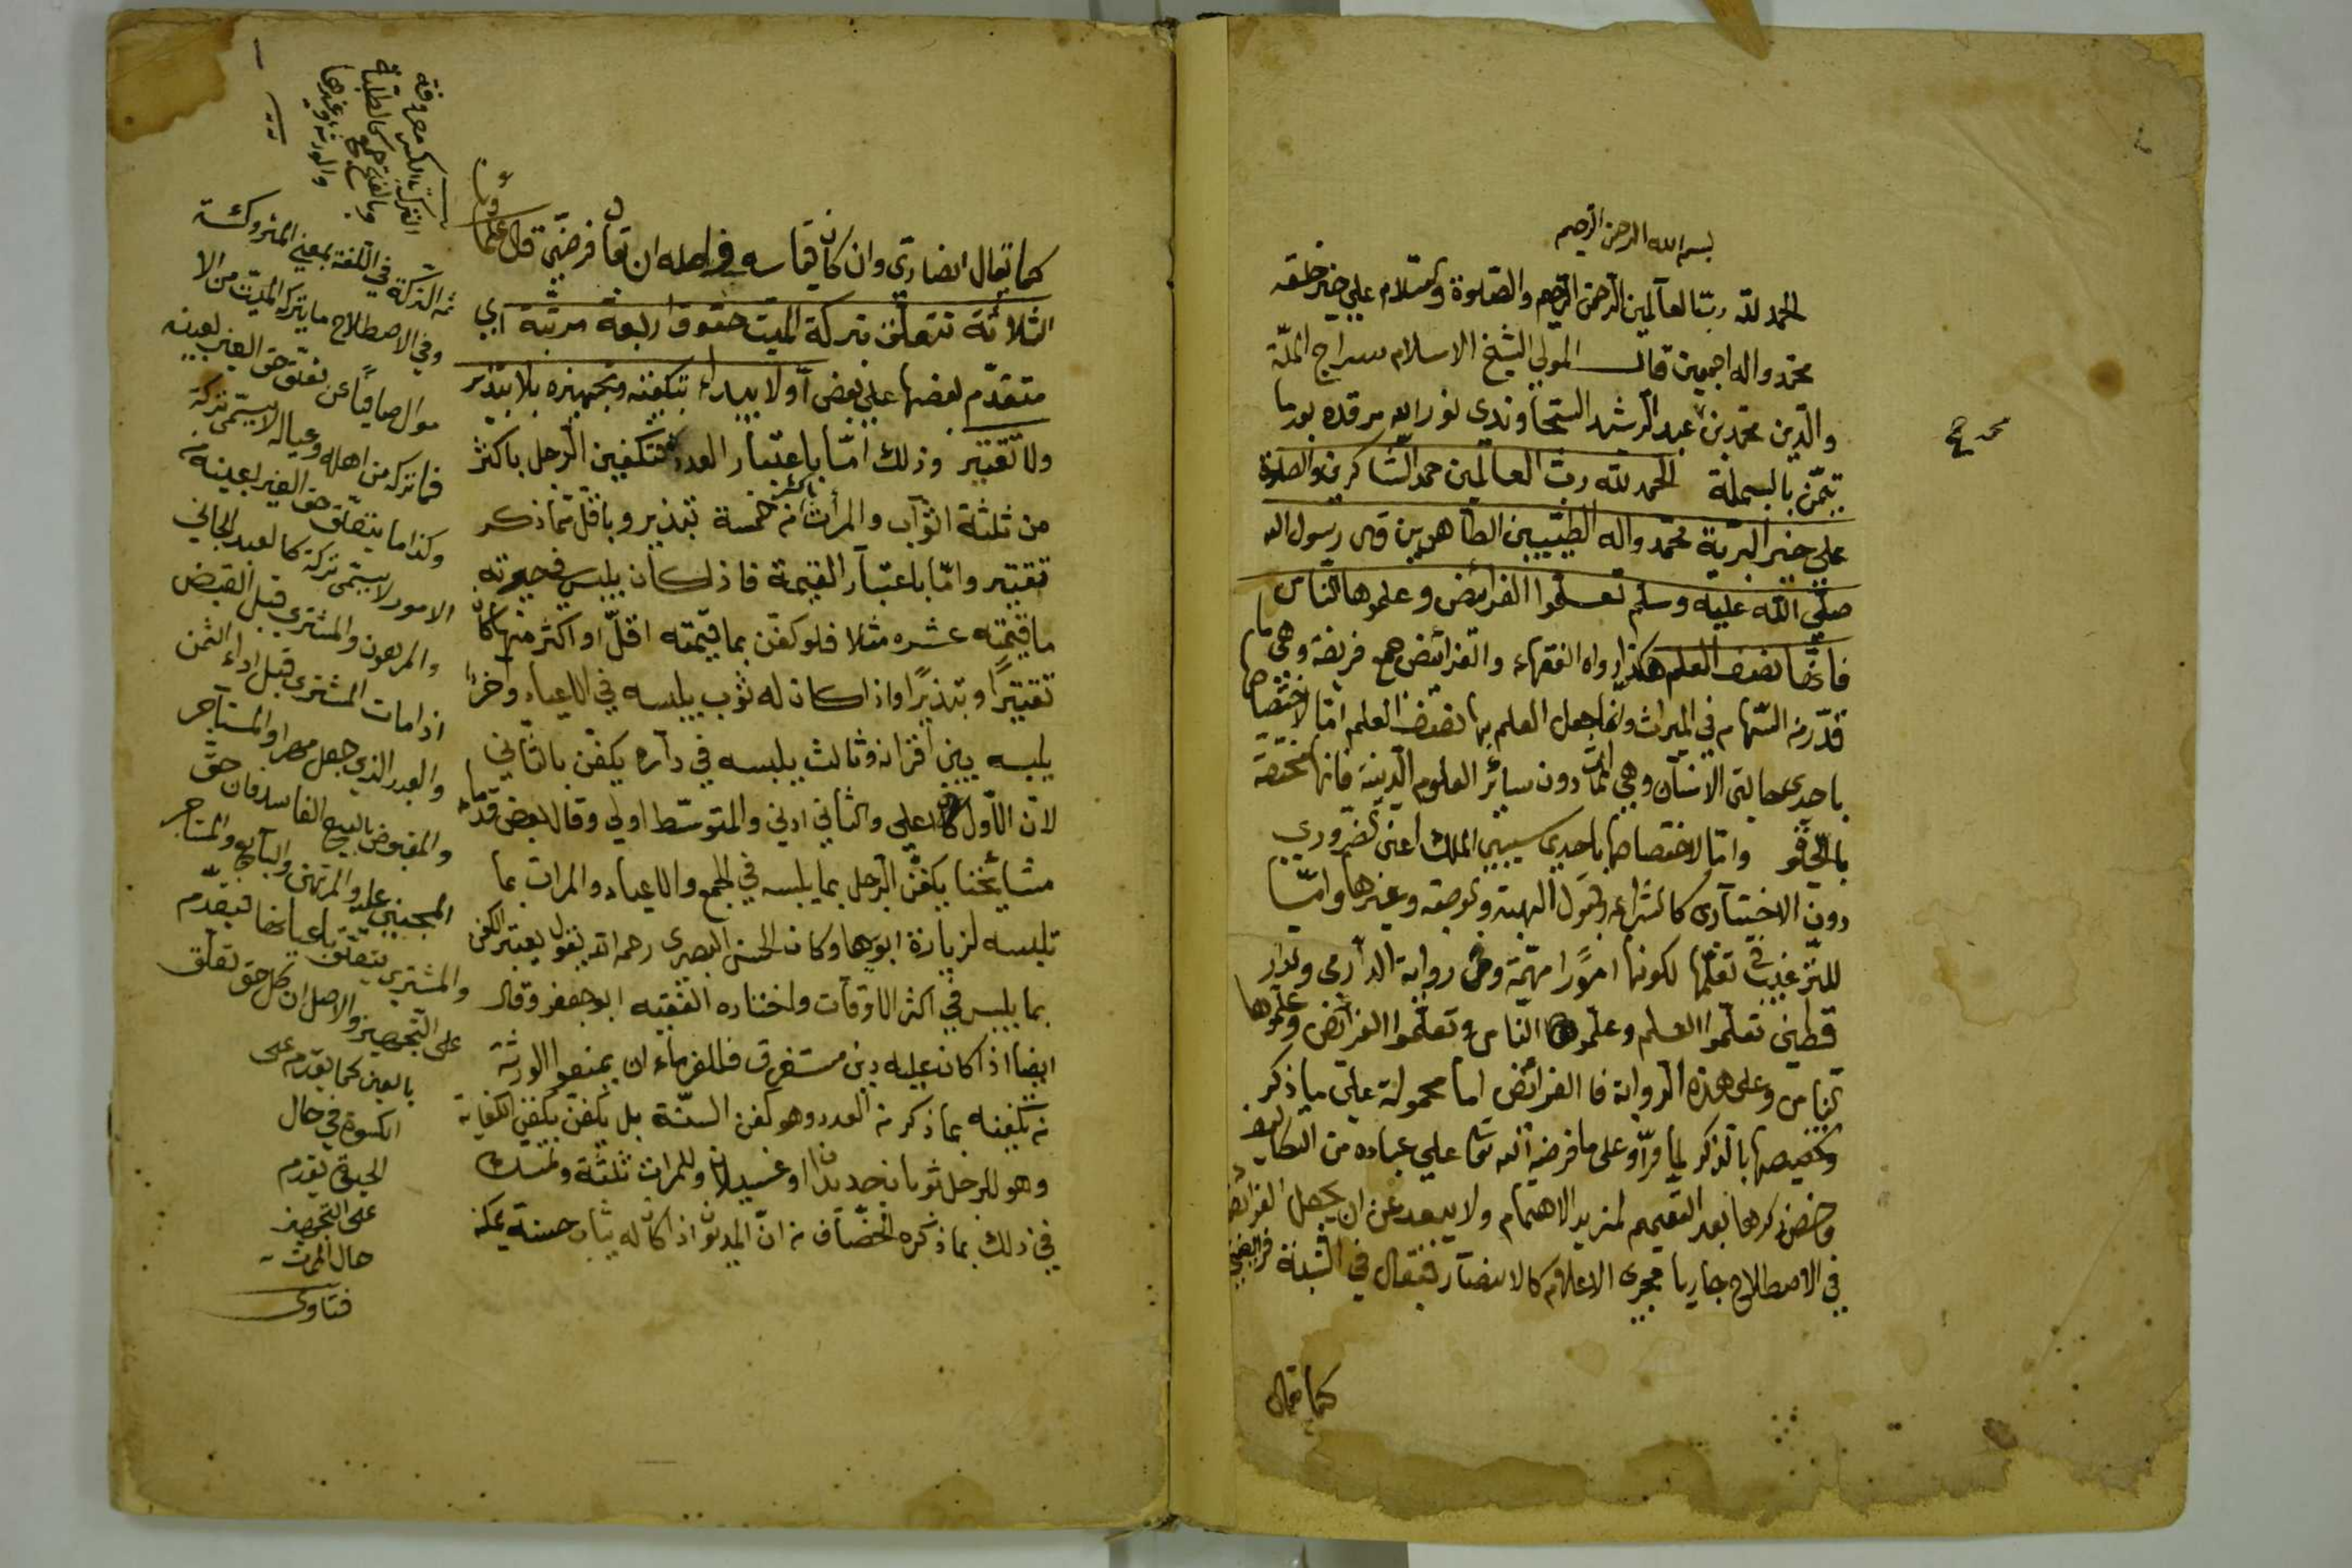 بسم الله الرحمن الرحيم
الحمد لله رب العالمين الرحمن الرحيم والصلوة والسلام على خير خلقه
محمد واله اجمعين قال المولى الشيخ الاسلام سراج الملة
والدين محمد بن عبد الرشيد السجاوندى نور الله مرقده بعد ما
تيمن بالبسملة الحمد لله رب العالمين حمد الشاكرين والصلوة
على خير البرية محمد واله الطيبين الطاهرين قال رسول الله
صلى الله عليه وسلم تعلموا الفرائض وعلموها الناس
فانها نصف العلم هكذا رواه الفقهاء والفرائض جمع فريضة وهى ما
قدر من السهام في الميراث وانما جعل العلم بها نصف العلم اما لاختصاصها
باحدى حالتى الانسان وهى الممات دون سائر العلوم الدينية فانها مختصة
بالحيوة واما لاختصاصها باحدى سببى الملك اعنى الضرورى
دون الاختيارى كالشراء وقبول الهبة والوصية وغيرها واما
للترغيب في تعلمها لكونها امورا مهمة وفى رواية الدارمى والدار
قطنى تعلموا العلم وعلموها الناس وتعلموا الفرائض وعلموها
الناس وعلى هذه الرواية فالفرائض اما محمولة على ما ذكر
وتخصيصها بالذكر لما مر او على ما فرضه الله تعا على عباده من التكاليف
وخص ذكرها بعد التعميم لمزيد الاهتمام ولا يبعد عن ان يجعل الفرائض
في الاصطلاح جاريا مجرى الاعلام كالانصار فيقال في النسبة فرائضى
كما يقال
كما يقال انصارى وان كان قياسه في اصله ان يقال فرضى قال علماؤنا
الثلاثة تتعلق بتركة الميت حقوق اربعة مرتبة اى
متقدم بعضها على بعض اولا يبداء بتكفينه وتجهيزه بلا تبذير
ولا تقتير وذلك اما باعتبار العدد فتكفين الرجل باكثر
من ثلثة اثواب والمرأت باكثر من خمسة تبذير وباقل مما ذكر
تقتير واما باعتبار القيمة فاذا كان يلبس في حيوته
ما قيمته عشره مثلا فلو كفن بما قيمته اقل او اكثر منها كان
تقتيرا وتبذيرا واذا كان له ثوب يلبسه في الاعياد واخر
يلبسه بين اقرانه وثالث يلبسه في داره يكفن بالثانى
لان الاول اعلى والثانى ادنى والمتوسط اولى وقال بعض قدماء
مشائخنا يكفن الرجل بما يلبسه في الجمع والاعياد والمرات بما
تلبسه لزيارة ابويها وكان الحسن البصرى رحمه الله يقول يعتبر الكفن
بما يلبس في اكثر الاوقات واختاره الفقيه ابو جعفر وقال
ايضا اذا كان عليه دين مستغرق فللغرماء ان يمنعوا الورثة
من تكفينه بما ذكر من العدد وهو كفن السنة بل يكفن بكفن الكفاية
وهو للرجل ثوبان جديدان او غسيلان وللمرات ثلثة وتمسك
في ذلك بما ذكره الخصاف من ان المديون اذا كان له ثياب حسنة يمكنه
ثم التركة في اللغة بمعنى المتروكة
وفي الاصطلاح ما يتركه الميت من الا
موال صافيا عن تعلق حق الغير بعينه
فما تركه من اهله وعياله لا يسمى تركة
وكذا ما يتعلق حق الغير بعينه من
الامور لا يسمى تركة كالعبد الجانى
والمرهون والمشترى قبل القبض
اذا مات المشترى قبل اداء الثمن
والعبد الذى جعل مهرا والمستأجر
والمقبوض بالبيع الفاسد فان حق
المجنى عليه والمرتهن والبائع والمستأجر
والمشترى يتعلق باعيانها فيقدم
على التجهيز والاصل ان كل حق تعلق
بالعين كما يقدم على
الكسوة في حال
الحيوة يقدم
على التجهيز
حال الموت
فتاوى